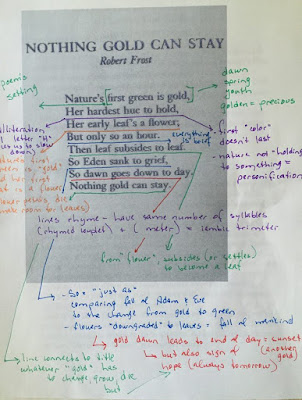 NOTHING GOLD CAN STAY
Robert Frost
poems
setting
dawn
spring
youth
golden = precious
Nature's first green is gold,
Her hardest hue to hold,
Her early leaf's a flower;
But only so an hour.
Then leaf subsides to leaf.
So Eden sank to grief,
So dawn goes down to day.
Nothing gold can stay.
everything
is brief
alliteration
letter "H"
us to slow
down
first
green is "gold"
her first
is a flower
petals die
make room for leaves)
first "color"
doesn't last
nature not "holding"
to something =
personification
lines rhyme - have same number of syllables
(rhymed couplet) + (meter) = iambic trimeter
from "flower", subsides (or settles)
to become a leaf
- So = "just as"
comparing fall of Adam & Eve
to the change from gold to green
- flowers "downgraded" to leaves = fall of mankind
gold dawn leads to end of day = sunset
(another
gold)
but also sign of
hope (always tomorrow)
line connects to title
whatever "gold" has
to change, grow, die
but